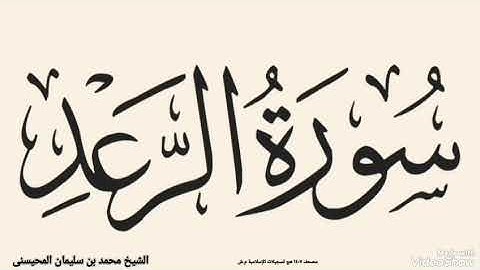 سُورَةُ الرَّعْدِ
الشيخ محمد بن سليمان المحيسنى
مصحف ١٤٠٧ هج تسجيلات الإسلامية
VideoShow